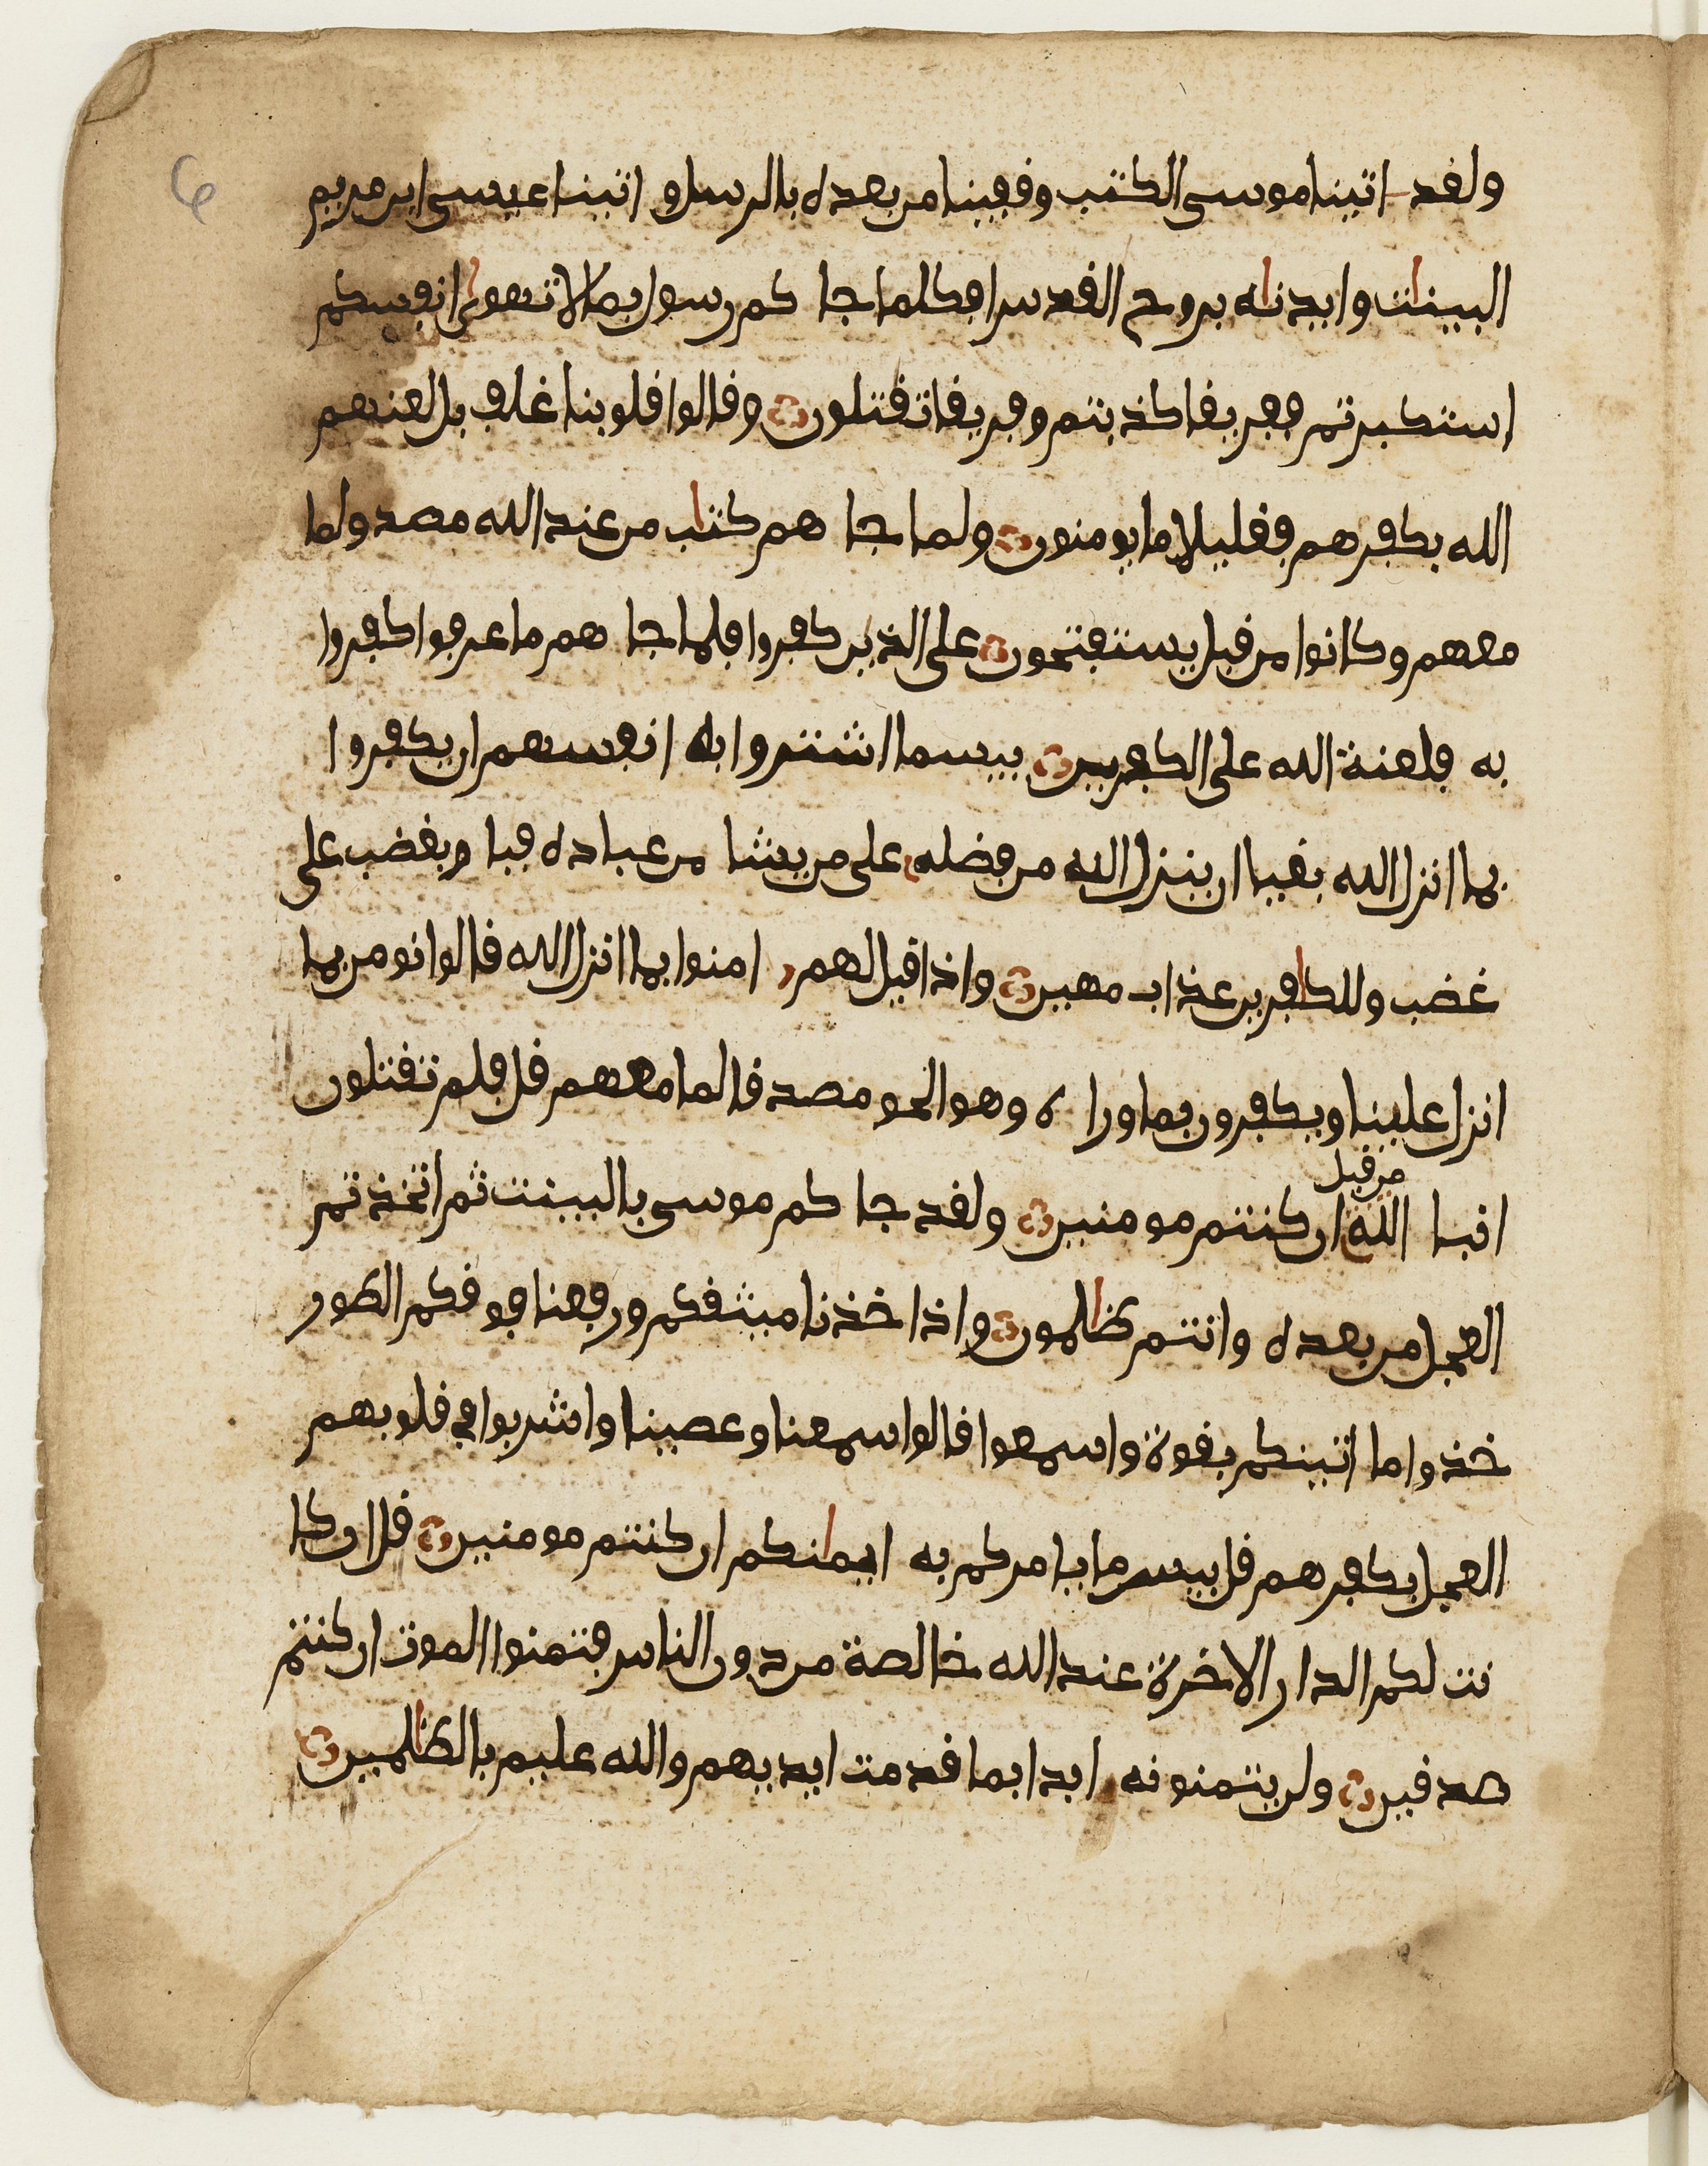 ولفد اتينا موسى الكتب وففينا من بعده بالرسل و اتينا عيسى ابن مريم
البينات وايدناه بروح الفدس افكلما جا كم رسول بما لا تهوى انفسكم
استكبرتم ففريفا كذبتم وفريفا تفتلون وفالوا فلوبنا غلف بل لعنهم
الله بكفرهم ففليلا ما يومنون ولما جا هم كتاب من عند الله مصدق لما
معهم وكانوا من فبل يستفتحون على الذين كفروا فلما جا هم ما عرفوا كفروا
به فلعنة الله على الكفرين بيسما اشتروا به انفسهم ان يكفروا
بما انزل الله بغيا ان ينزل الله من فضله على من يشا من عباده فبا و بغضب على
غضب وللكافرين عذاب مهين واذا فيل لهم امنوا بما انزل الله فالوا نومن بما
انزل علينا ويكفرون بما ورا ه وهو الحق مصدفا لما معهم فل فلم تفتلون
من فبل
انبيا الله ان كنتم مومنين ولفد جا كم موسى بالبينت ثم اتخذتم
العجل من بعده وانتم ظالمون واذ اخذنا ميثفكم ورفعنا فوفكم الطور
خذوا ما اتينكم بفوة واسمعوا فالوا سمعنا وعصينا واشربوا في فلوبهم
العجل بكفرهم فل بيسما يامركم به ايمانكم ان كنتم مومنين فل ان كا
نت لكم الدار الاخرة عند الله خالصة من دون الناس فتمنوا الموت ان كنتم
صدفين ولن يتمنونه ابدا بما فدمت ايديهم والله عليم بالظالمين